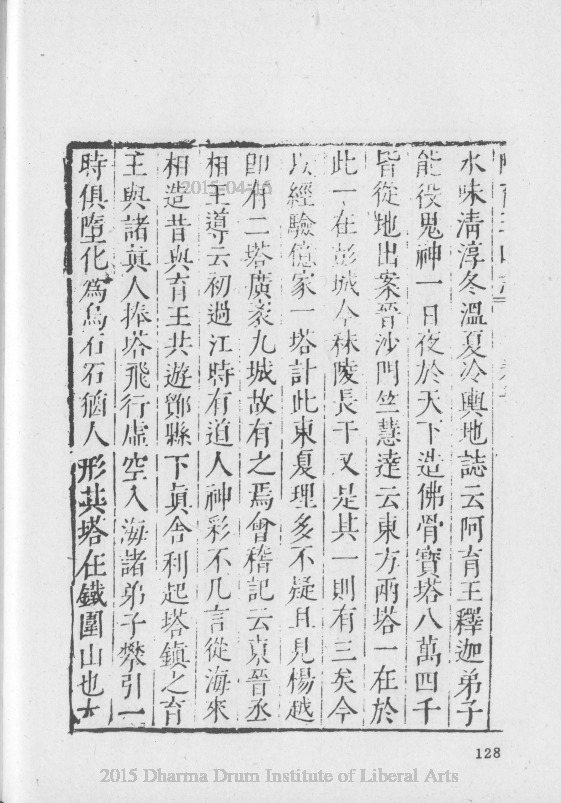 水味清淳冬溫夏冷輿地誌云阿育王釋迦弟子
能役鬼神一日夜於天下造佛骨寶塔八萬四千
皆從地出案晉沙門竺慧達云東方兩塔一在於
此一在彭城今秣陵長干又是其一則有三矣今
以經驗億家一塔計此東夏理多不疑且見楊越
即有二塔廣袤九域故有之焉會稽記云東晉丞
相王導云初過江時有道人神彩不凡言從海來
相造昔與育王共遊鄮縣下眞舍利起塔鎮之育
王與諸眞人捧塔飛行虛空入海諸弟子攀引一
時俱墮化爲烏石石猶人形其塔在鐵圍山也太
2015-04-15
128
2015 Dharma Drum Institute of Liberal Arts